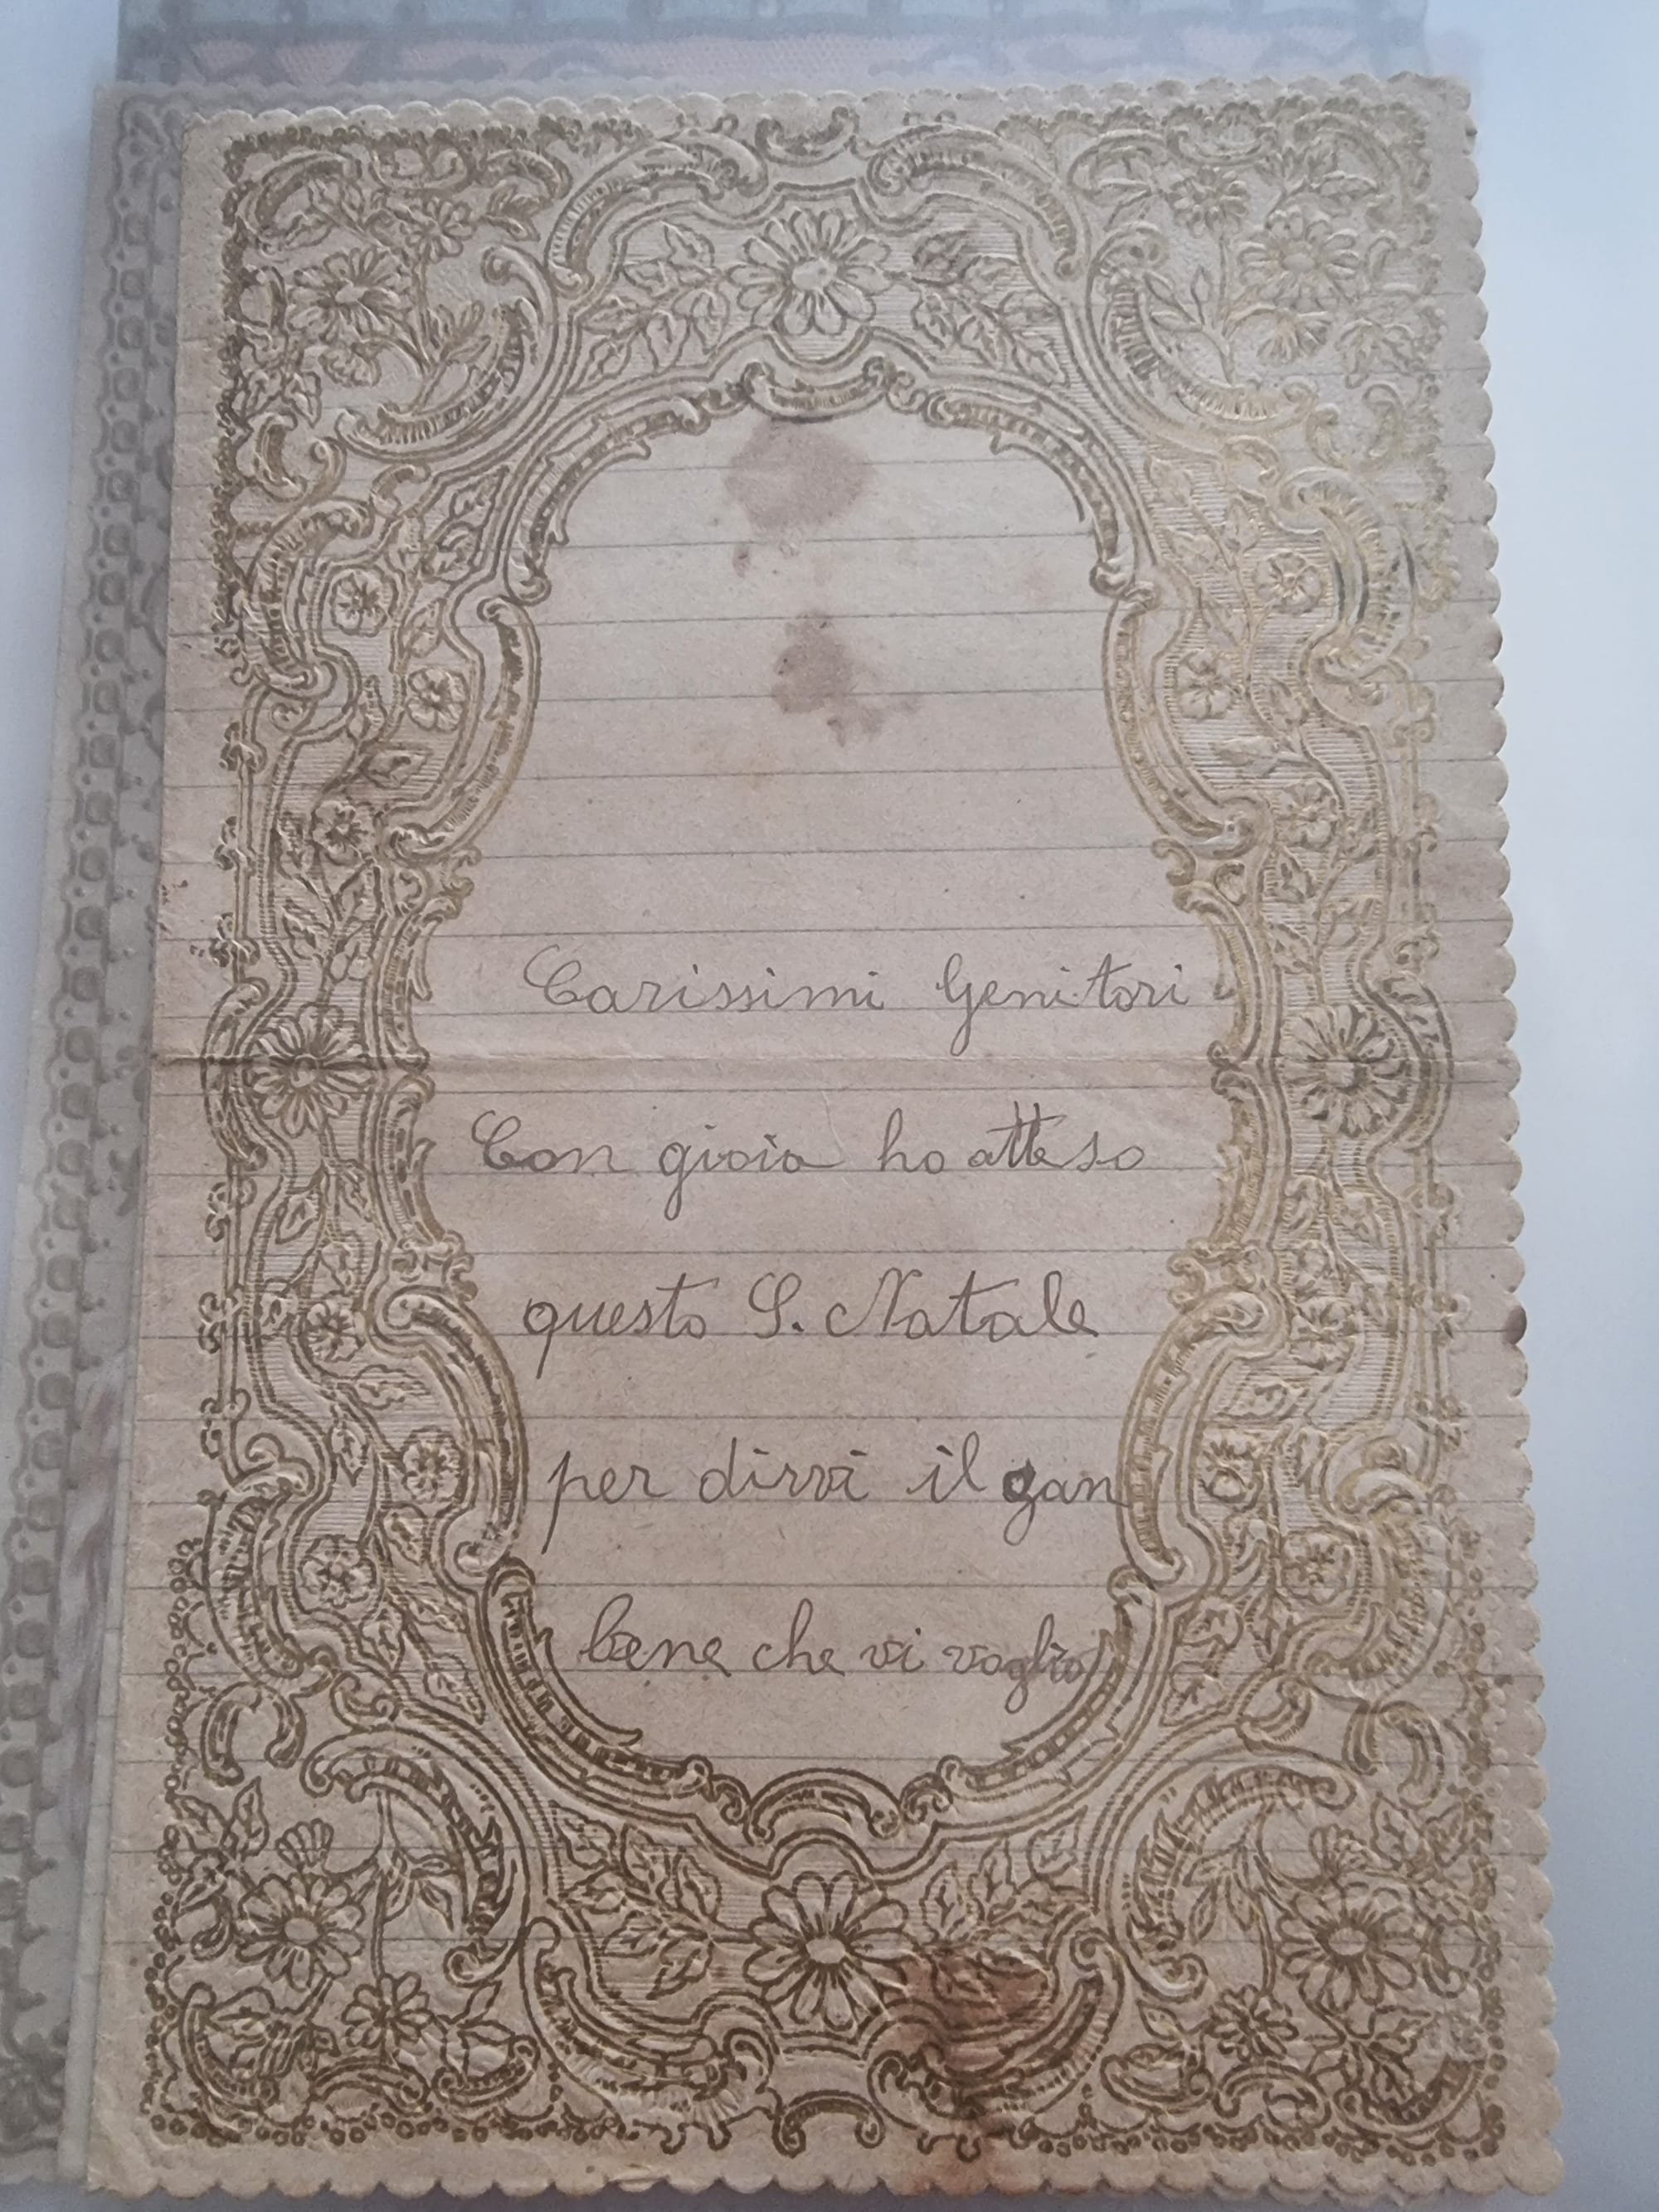 Carissimi Genitori
Con gioia ho atteso
questo S. Natale
per dirvi il gan
bene che vi voglio